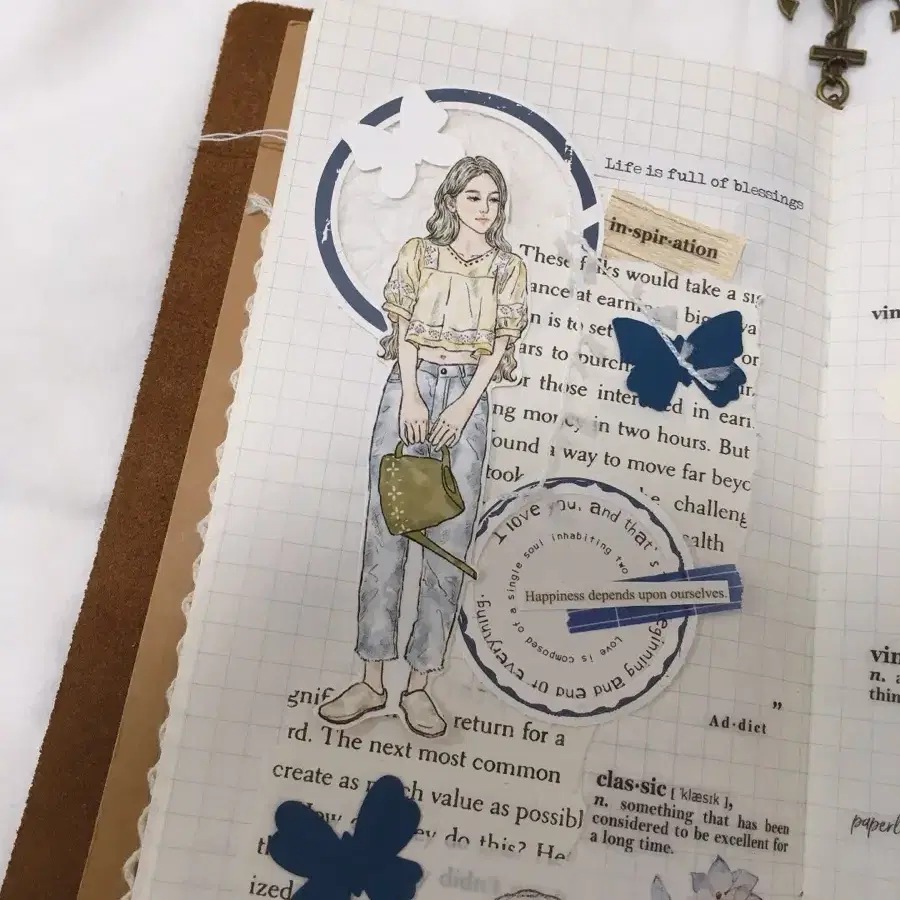 Life is full of blessings
in·spir·ation
These folks would take a
ance at earning big
n is to set
ars to purch
or those interested in earn
ng money in two hours. But
ound a way to move far beyo
took challeng
ealth
I love you, and that's beginning and end of everything.
Love is composed of a single soul inhabiting two
Happiness depends upon ourselves.
”
Ad·dict
gnif return for a
rd. The next most common
create as much value as possibl
they do this? He
th
didn't
ized
clas·sic [ ˈklæsɪk ],
n. something that has been
considered to be excellent for
a long time.
vin
vin
n. a
thin
paperl